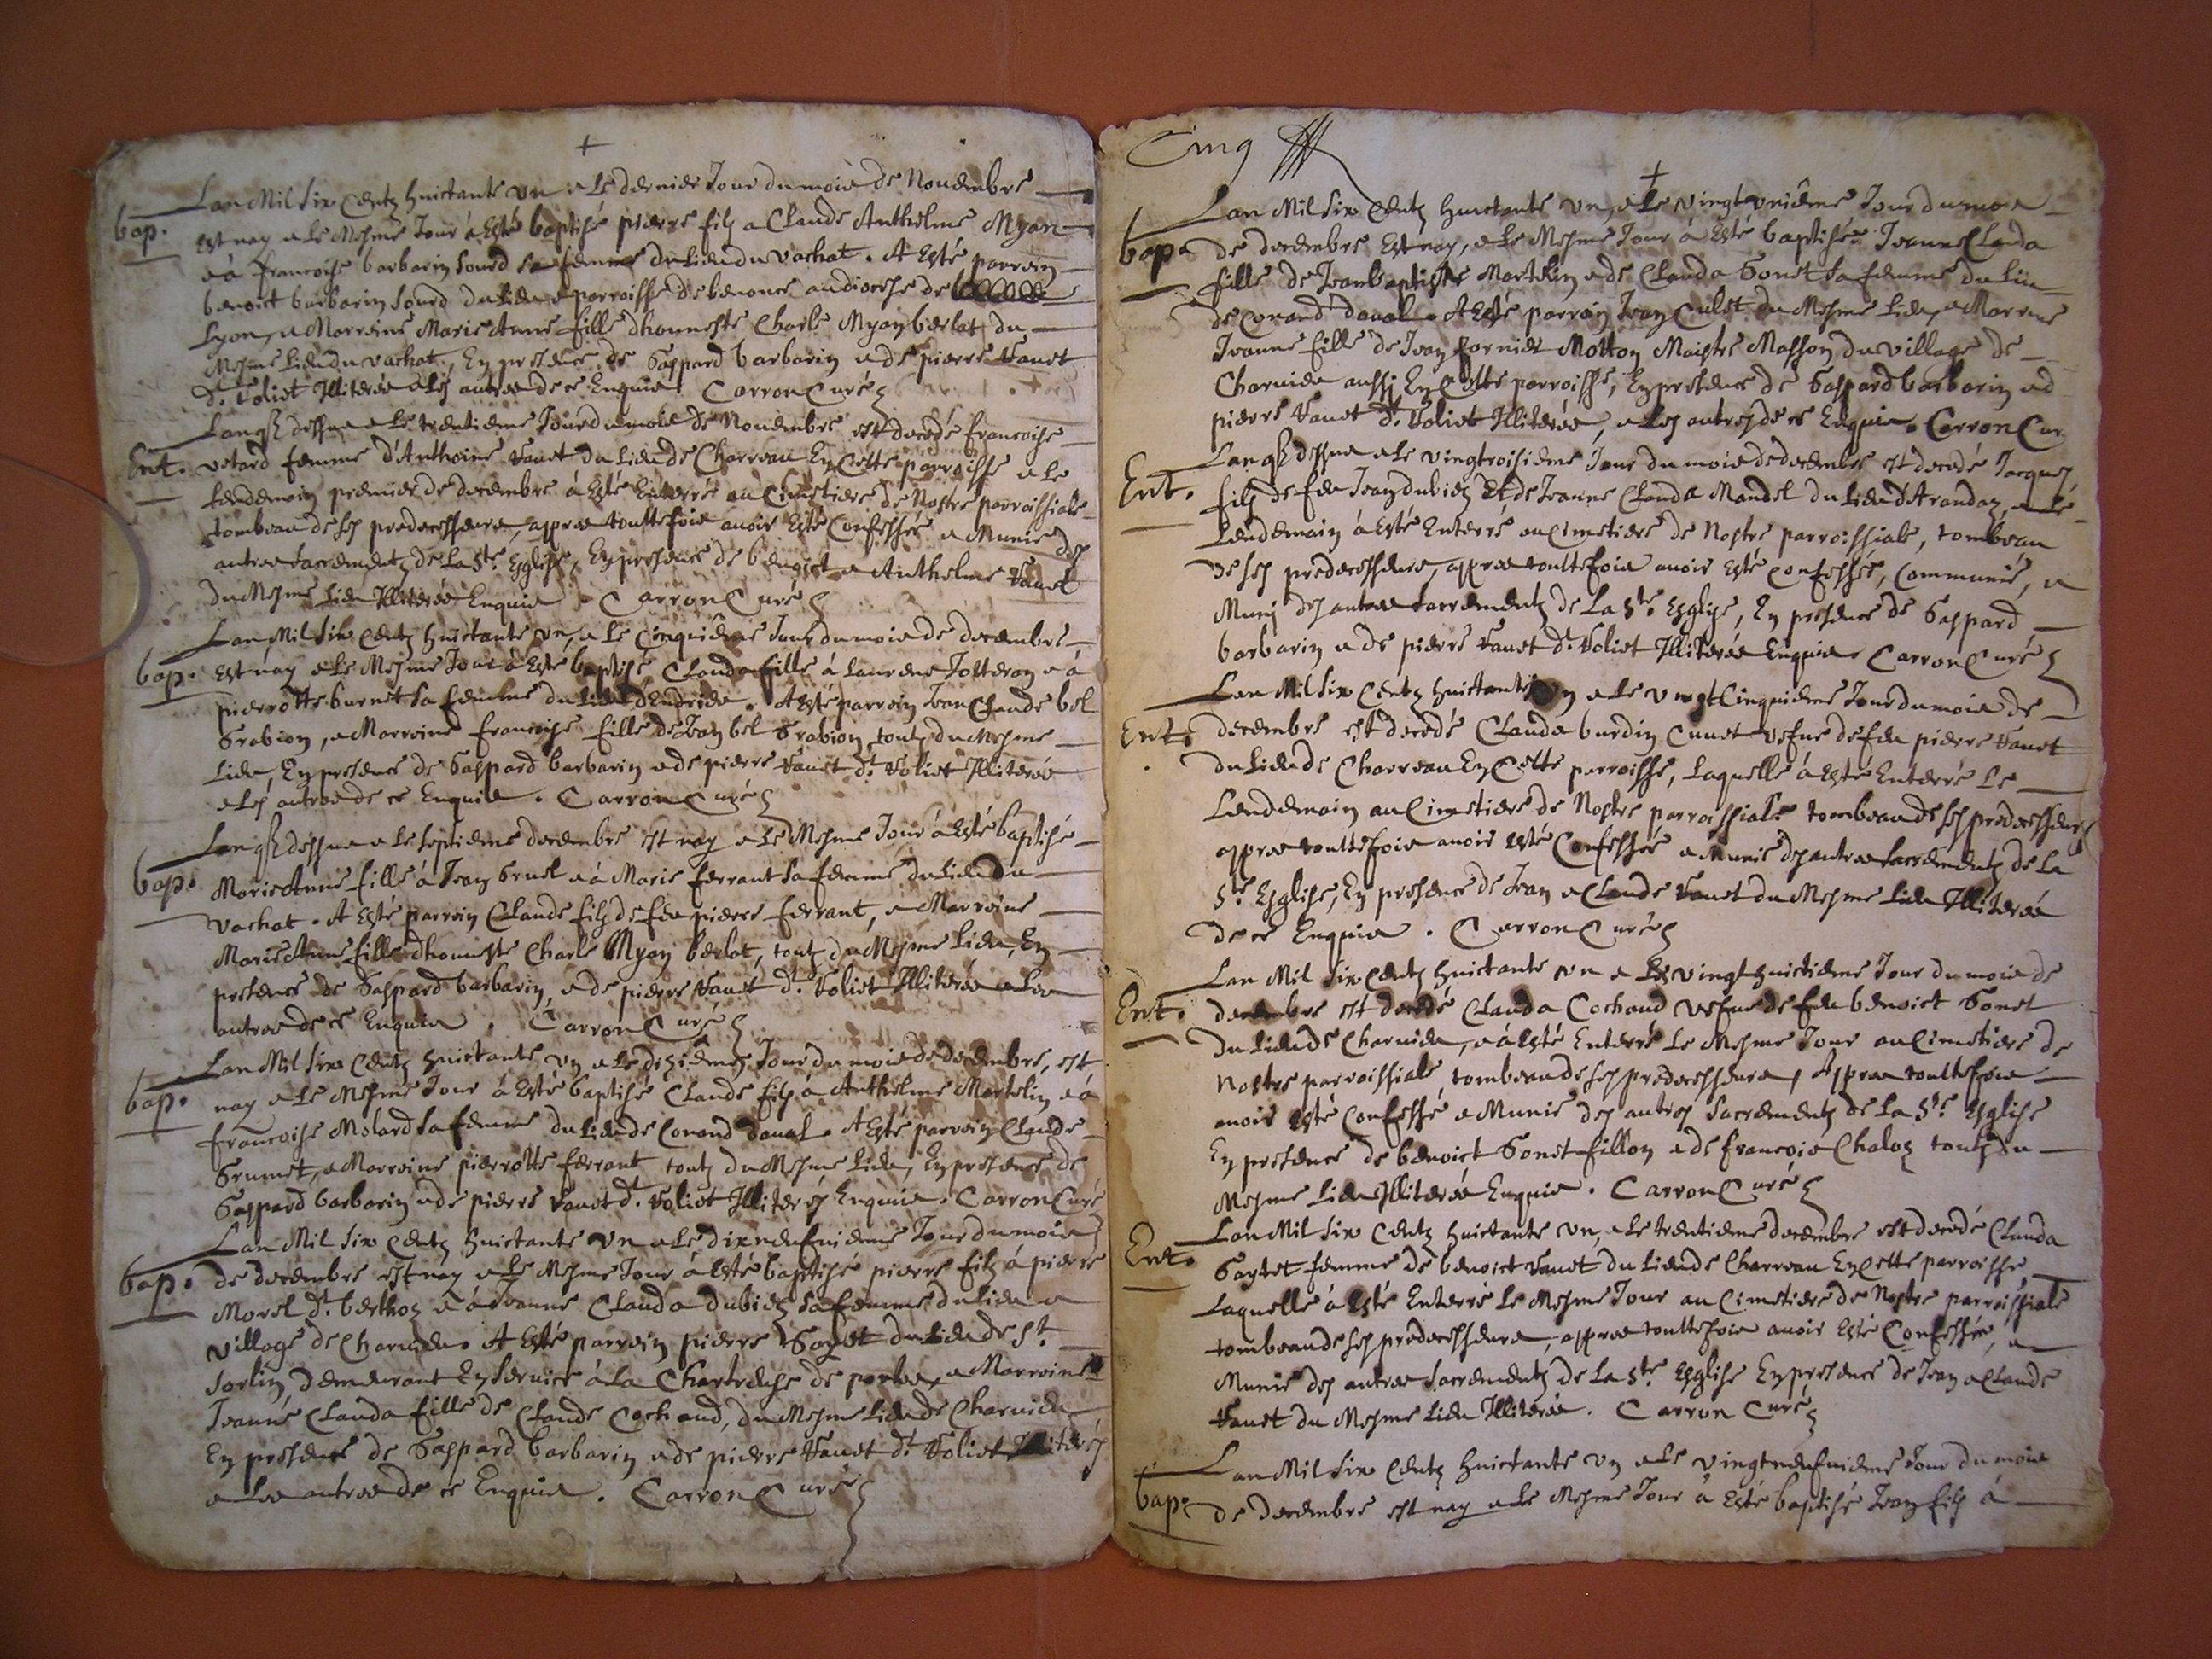 +
Lan Mil Six Centz huictante un e Le dernier Jour du mois de Novembre
bap. est nay e Le Mesme Jour à Esté baptisé pierre filz a Claude Anthelme Myan
e à francoise barbarin Sourd sa femme du Lieu du Vachat. A Esté parrein
benoict barbarin Sourd du Lieu e parroisse de benonce au diocese de
Lyon, e Marreine Marie Anne fille dhonneste Charle Myan berlat du
Mesme Lieu du Vachat, En presence de Gaspard barbarin e de pierre Vanet
dt. Voliet Illiterés e Les autres de ce Enquis. Carron Curé
Lan qe dessus e Le trentieme Jour du mois de Novembre est decedé francoise
Ent. vetard femme d'Anthoine Vanet du Lieu de Charveau En Cette parroisse e Le
Lendemain premier de decembre à Esté Enterré au Cimetiere de Nostre parroissiale
tombeau de ses predecesseurs, appres touttefois avoir Esté Confessée e Munie des
autres sacrementz de La Ste. Esglise, En presence de benoict e Anthelme Vanet
du Mesme Lieu Illiterés Enquis. Carron Curé
Lan Mil Six Centz huictante un, e Le Cinquieme Jour du mois de decembre
bap. Est nay e Le Mesme Jour à Esté baptisé Clauda fille à Laurens Jolteran e à
pierrotte burnet sa femme du Lieu dEndrieu. A Esté parrein Jean Claude bel
Grabion, e Marreine francoise fille de Jean bel Grabion, toutz du Mesme
Lieu, En presence de Gaspard barbarin e de pierre Vanet dt. Voliet Illiterés
e Les autres de ce Enquis. Carron Curé
Lan qe dessus e Le septieme decembre est nay e Le Mesme Jour à Esté baptisé
bap. Marie Anne fille à Jean Gruel e à Marie ferrant sa femme du Lieu du
Vachat. A Esté parrein Claude filz de feu pierre ferrant, e Marreine
Marie Anne fille dhonneste Charle Myan berlat, toutz du Mesme Lieu, En
presence de Gaspard barbarin, e de pierre Vanet dt. Voliet Illiterés e Les
autres de ce Enquis. Carron Curé
Lan Mil Six Centz huictante un e Le dizieme Jour du mois de decembre, est
bap. nay e Le Mesme Jour à Esté baptisé Claude filz à Anthelme Martelin e à
francoise Molard sa femme du Lieu de Conand daval. A Esté parrein Claude
Grumet, e Marreine pierrotte ferrant toutz du Mesme Lieu, En presence de
Gaspard barbarin e de pierre Vanet dt. Voliet Illiterés Enquis. Carron Curé
Lan Mil Six Centz huictante un e Le dixneufvieme Jour du mois
bap. de decembre est nay e Le Mesme Jour à Esté baptisé pierre filz à pierre
Morel dt. berthoz e à Jeanne Clauda dubiez sa femme du Lieu e
village de Charvieu. A Esté parrein pierre Goyet du Lieu de St.
Sorlin, demeurant En Service à La Chartreuse de portes, e Marreine
Jeanne Clauda fille de Claude Cochaud, du Mesme Lieu de Charvieu
En presence de Gaspard barbarin e de pierre Vanet dt Voliet Illiterés
e Les autres de ce Enquis. Carron Curé
Cinq
+
Lan Mil Six Centz huictante un, e Le vingtunième Jour du mois
bap. de decembre Est nay, e Le Mesme Jour à Esté baptisée Jeanne Clauda
fille de Jean baptiste Martelin e de Clauda Gonet sa femme du Lieu
de Conand daval. A Esté parrein Jean Culet du Mesme Lieu, e Marreine
Jeanne fille de Jean fornier Motton Maistre Masson du village de
Charvieu aussi En Cette parroisse, En presence de Gaspard barbarin e d
pierre Vanet dt. Voliet Illiterés, e Les autres de ce Enquis. Carron Cur
Lan qe dessus e Le vingtroisieme Jour du mois de decembre est decedé Jacques
Ent. filz de feu Jean dubiez Et de Jeanne Clauda Mandel du Lieu d'Arandaz, e Le
Lendemain à Esté Enterré au Cimetiere de Nostre parroissiale, tombeau
de ses predecesseurs, appres touttefois avoir Esté confessée, Communié, e
Muny des autres sacrementz de La Ste. Esglise, En presence de Gaspard
barbarin e de pierre Vanet dt. Voliet Illiterés Enquis. Carron Curé
Lan Mil Six Centz huictante un e Le vingt Cinquieme Jour du mois de
Ent. decembre est decedé Clauda burdin Cunet vefue de feu pierre Vanet
du Lieu de Charveau En Cette parroisse, Laquelle à Esté Enterré Le
Lendemain au Cimetiere de Nostre parroissiale tombeau de ses predecesseurs
appres touttefois avoir Esté Confessée e Munie des autres sacrementz de La
Ste. Esglise, En presence de Jean e Claude Vanet du Mesme Lieu Illiterés
de ce Enquis. Carron Curé
Lan Mil Six Centz huictante un e Le vingt huictieme Jour du mois de
Ent. decembre est decedé Clauda Cochaud vefue de feu benoict Gonet
du Lieu de Charvieu, e à Esté Enterré Le Mesme Jour au Cimetiere de
Nostre parroissiale, tombeau de ses predecesseurs, Appres touttefois
avoir Esté Confessé e Munie des autres Sacrementz de La Ste. Esglise
En presence de benoict Gonet fillon e de francois Chaloz toutz du
Mesme Lieu Illiterés Enquis. Carron Curé
Lan Mil Six Centz huictante un, e Le trentieme decembre est decedé Clauda
Ent. Gaytet femme de benoict Vanet du Lieu de Charveau En Cette parroisse
Laquelle à Esté Enterré Le Mesme Jour au Cimetiere de Nostre parroissiale
tombeau de ses predecesseurs, appres touttefois avoir Esté Confessée, e
Munie des autres sacrementz de La Ste. Esglise En presence de Jean e Claude
Vanet du Mesme Lieu Illiterés. Carron Curé
Lan Mil Six Centz huictante un e Le vingtneufvieme Jour du mois
bap. de decembre est nay e Le Mesme Jour à Esté baptisé Jean filz à